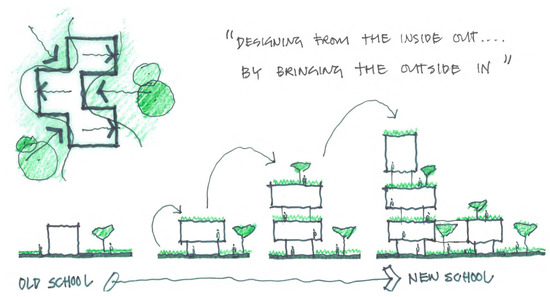 "DESIGNING FROM THE INSIDE OUT....
BY BRINGING THE OUTSIDE IN"
OLD SCHOOL
NEW SCHOOL